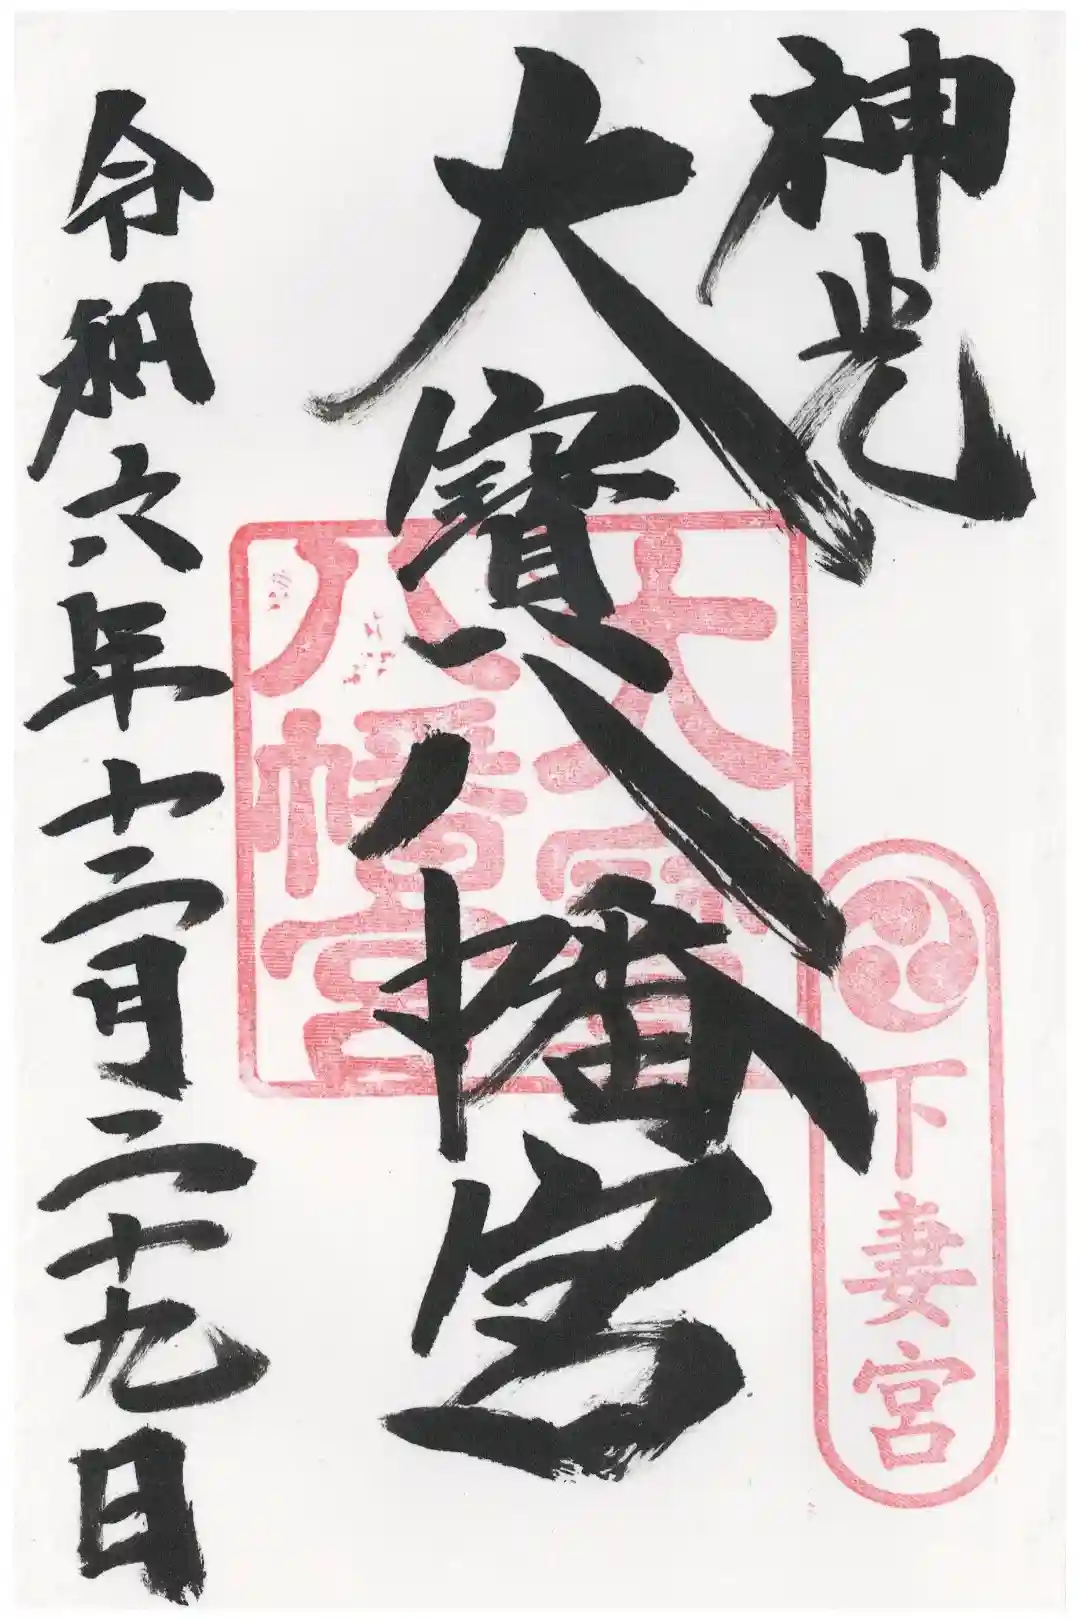 神光
下妻宮
大寳八幡宮
大宝
八幡宮
令和六年十二月二十九日